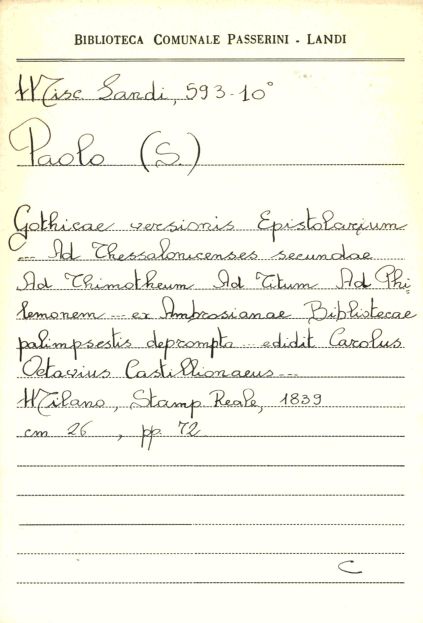 BIBLIOTECA COMUNALE PASSERINI - LANDI
Misc Landi, 593-10°
Paolo (S.)
Gothicae versionis Epistolarum
--- Ad Thessalonicenses secundae
Ad Thimotheum Ad Titum Ad Phi-
lemonem -- ex Ambrosianae Bibliotecae
palimpsestis deprompta -- edidit Carolus
Octavius Castillionaeus ---
Milano, Stamp. Reale, 1839
cm 26 , pp. 72
C